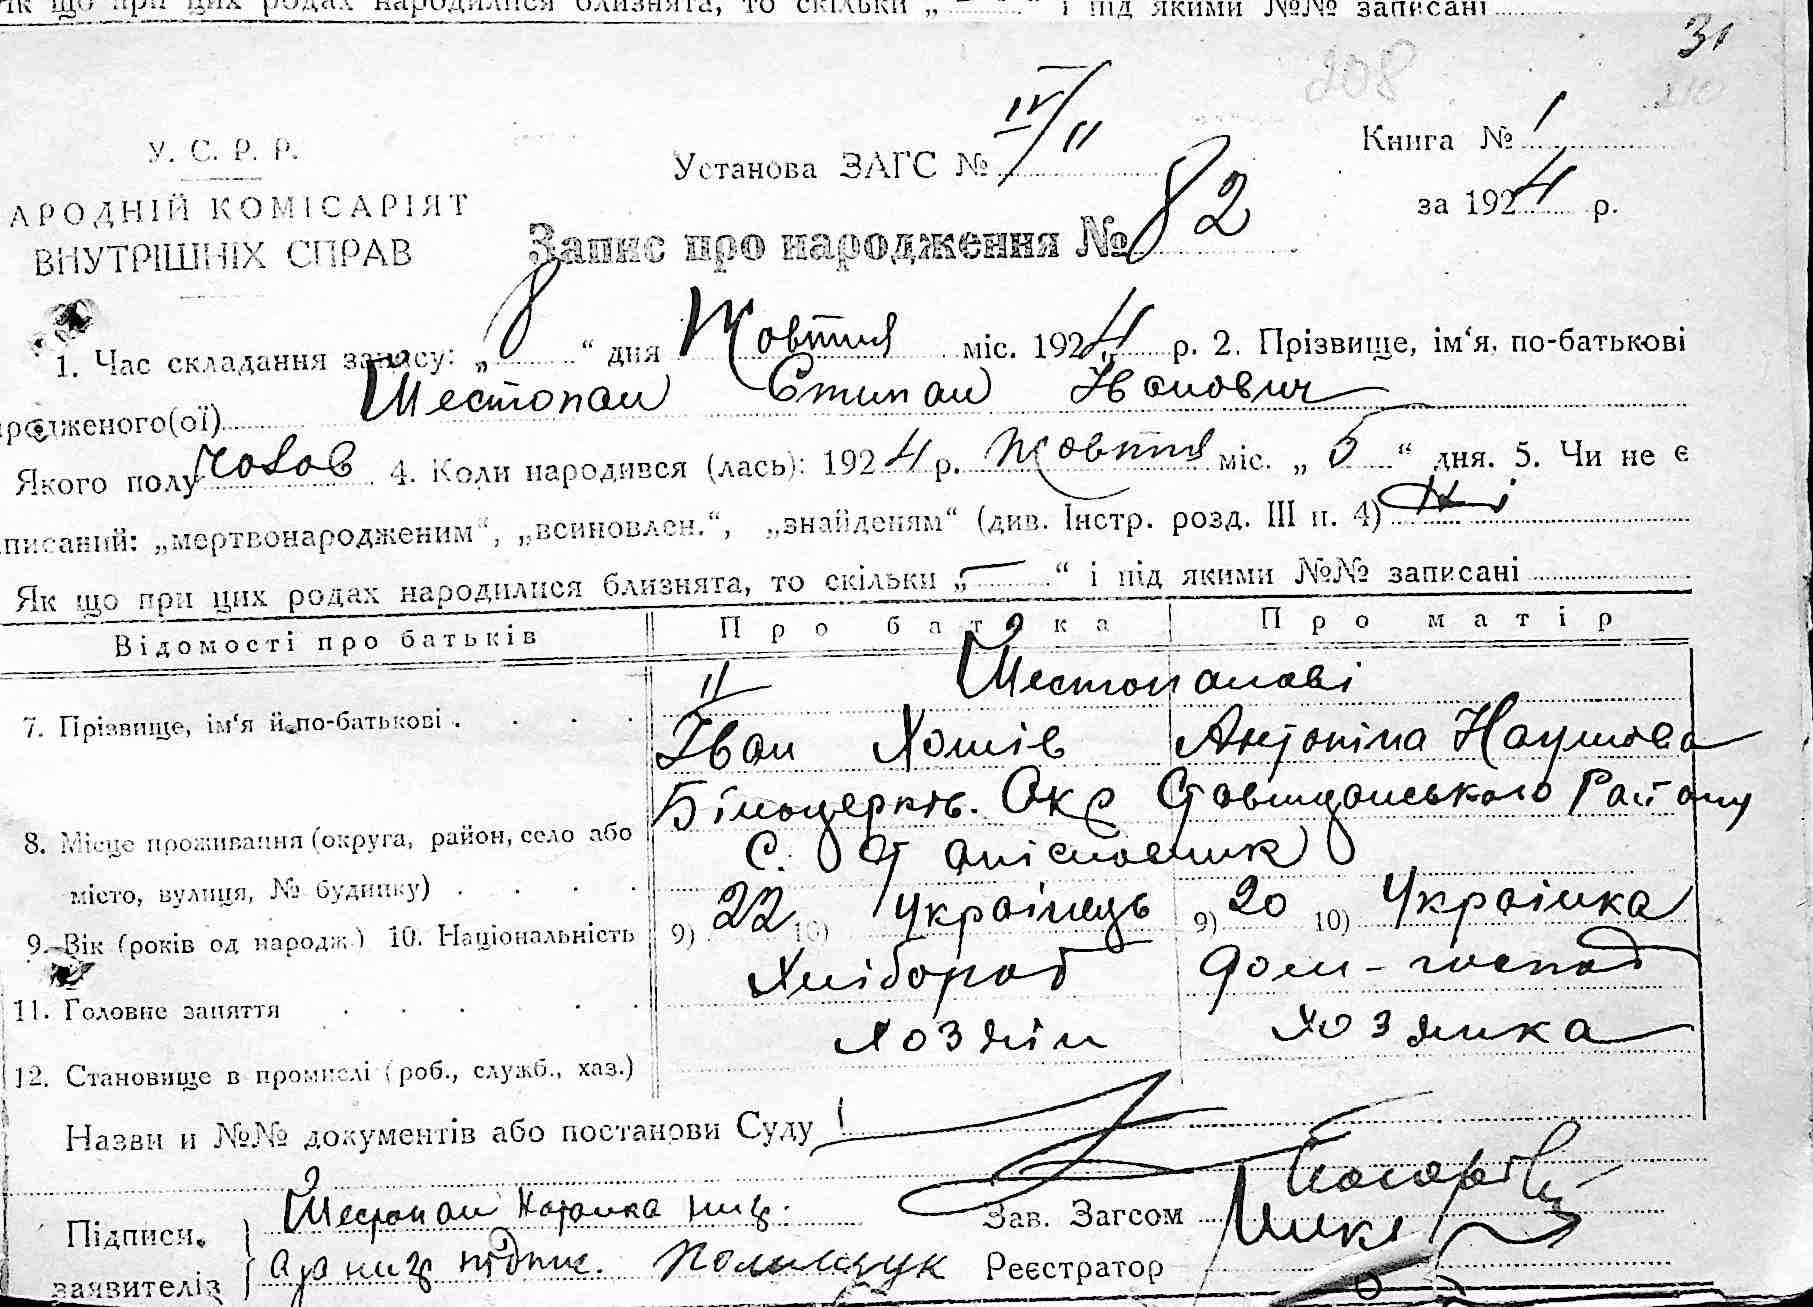 Як що при цих родах народилися близнята, то скільки „ — “ і під якими №№ записані
31
208
У. С. Р. Р.
АРОДНІЙ КОМІСАРІЯТ
ВНУТРІШНІХ СПРАВ
Установа ЗАГС № IV/11
Книга № 1
за 1924 р.
Запис про народження № 82
1. Час складання запису: „8“ дня Жовтня міс. 1924 р. 2. Прізвище, ім‘я, по-батькові
родженого(ої) Шестопал Степан Іванович
Якого полу чолов 4. Коли народився (лась): 1924 р. жовтня міс. „5“ дня. 5. Чи не є
писаний: „мертвонародженим“, „всиновлен.“, „знайденям“ (див. Інстр. розд. III п. 4) Ні
Як що при цих родах народилися близнята, то скільки „ — “ і під якими №№ записані
Відомості про батьків Про батька Про матір
Шестопалові
7. Прізвище, ім‘я й по-батькові Іван Хомів Антоніна Наумова
Білоцерків. Окр Ставищанського Району
8. Місце проживання (округа, район, село або
місто, вулиця, № будинку) С.
9. Вік (років од народж.) 10. Національність 9) 22 10) Українець 9) 20 10) Українка
11. Головне заняття Хлібороб Дом-господ
12. Становище в промислі (роб., служб., хаз.) хозяін хозяйка
Назви и №№ документів або постанови Суду
Підписи Шестопал
заявителів а за підпис. Полищук
Зав. Загсом
Реєстратор